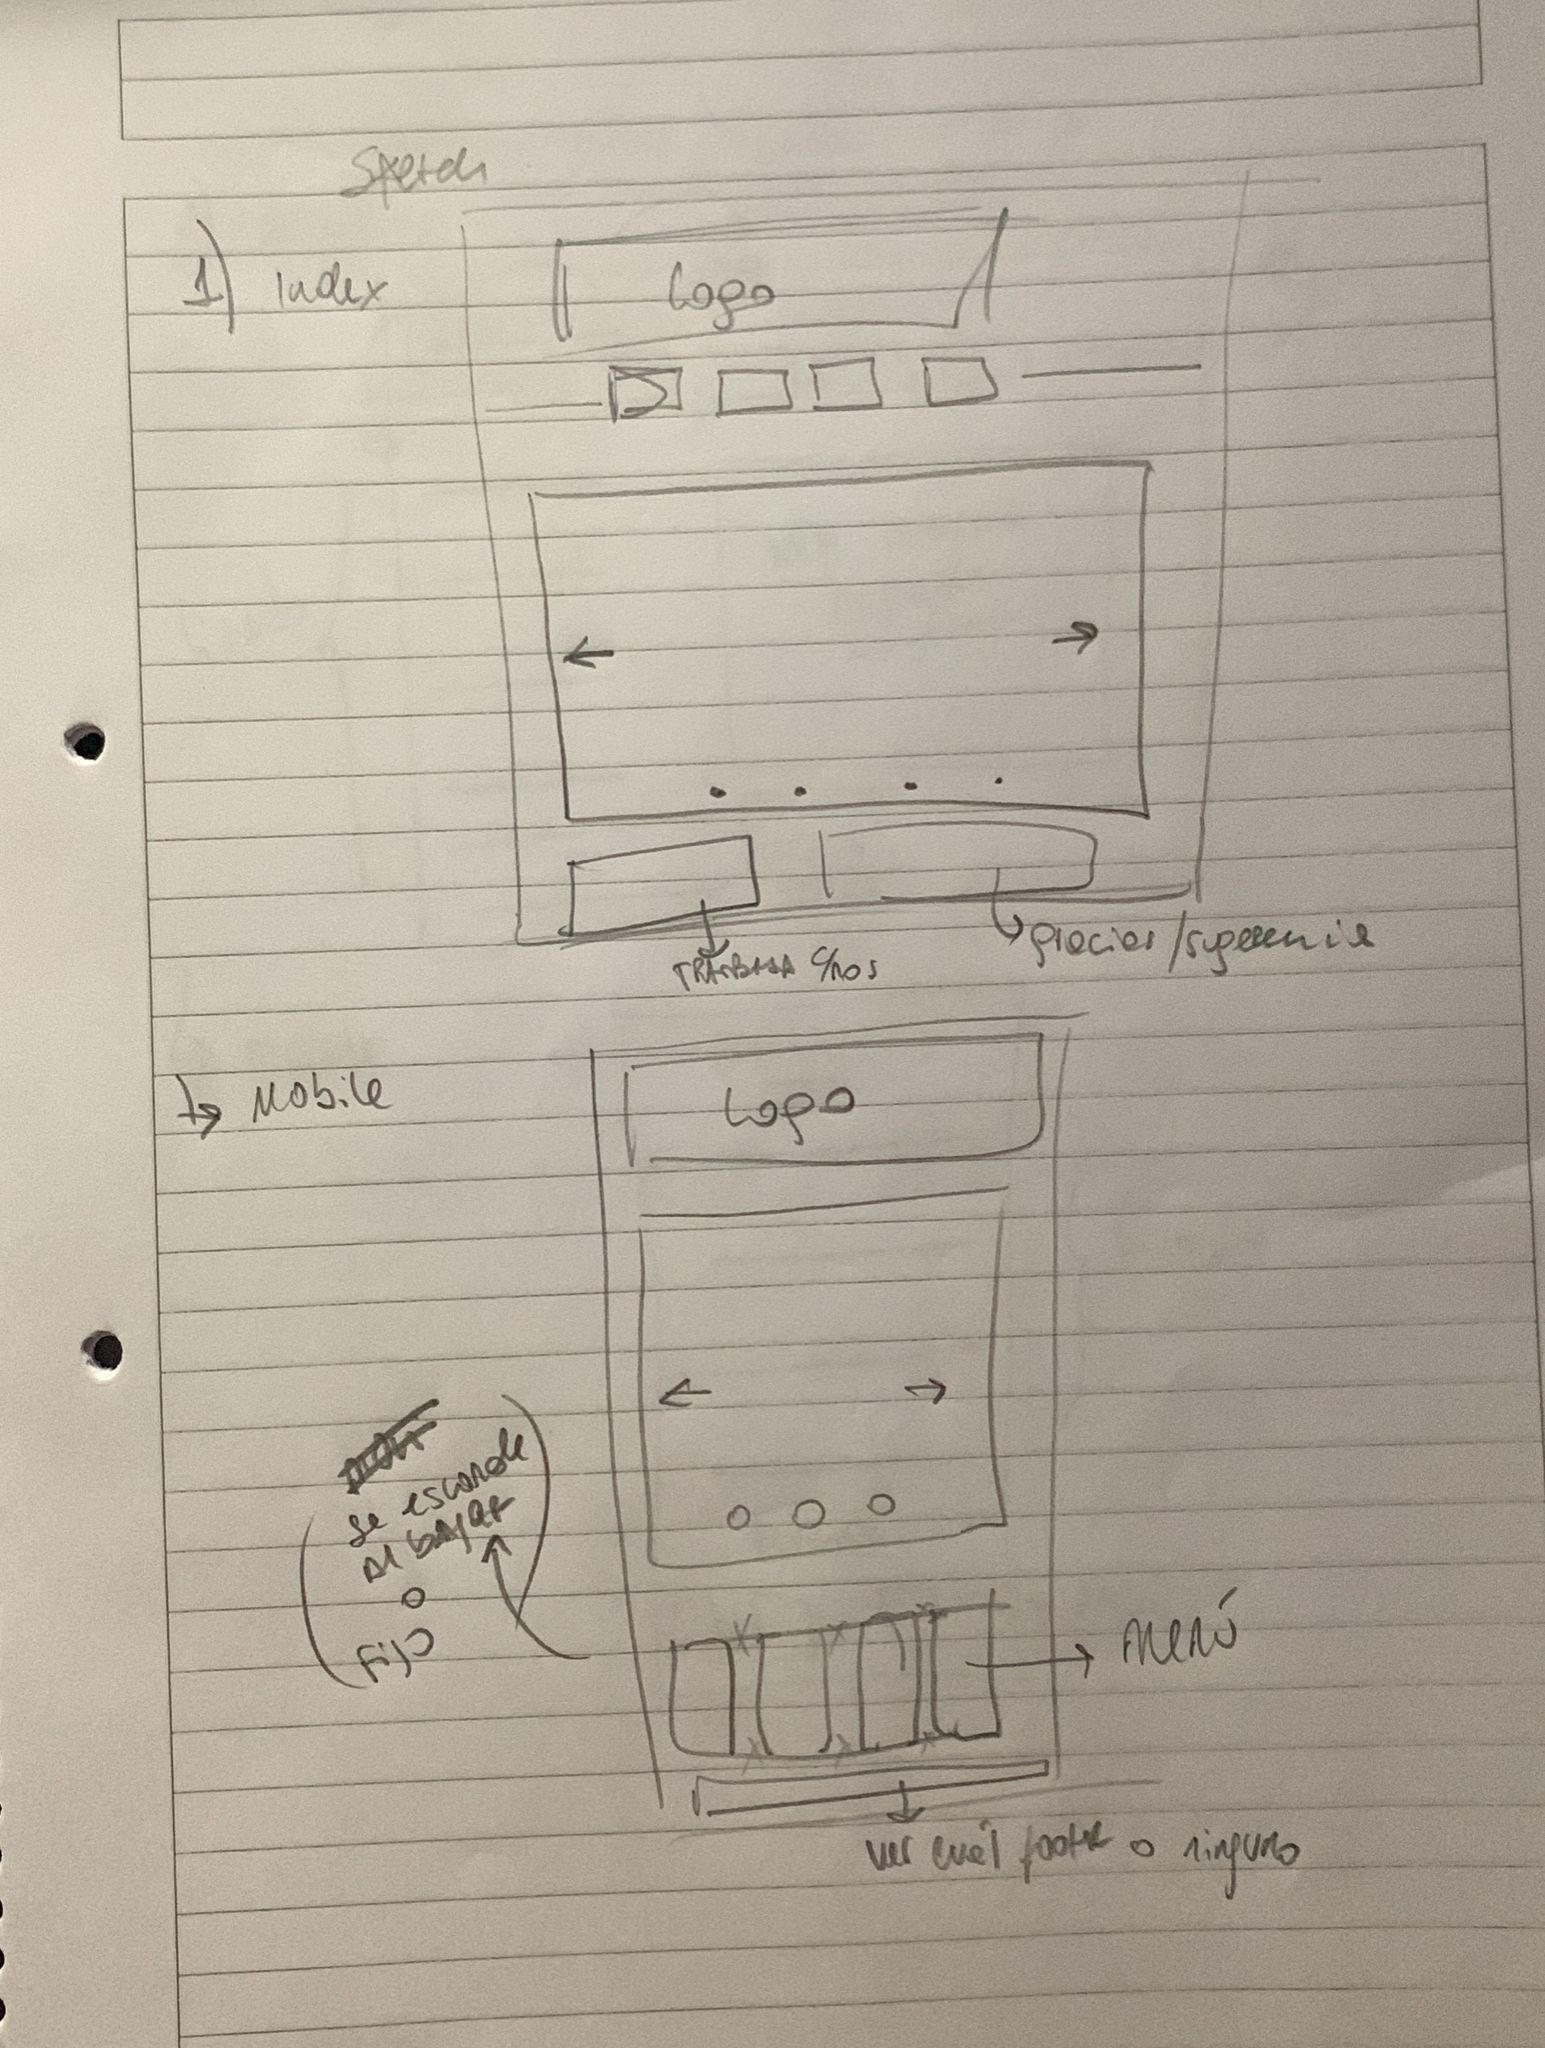 Sketch
1) Index
Logo
TRABAJA C/NOS
gracias/sugerencia
Mobile
Logo
se esconde
al bajar
o
Fijo
Menú
ver cuál footer o ninguno